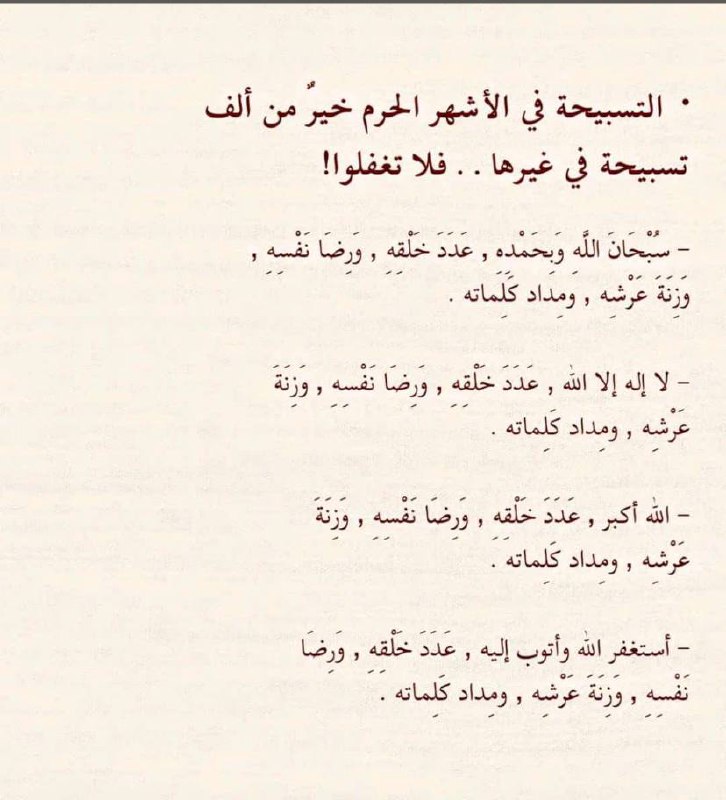 • التسبيحة في الأشهر الحرم خيرٌ من ألف
تسبيحة في غيرها . . فلا تغفلوا!
– سُبْحَانَ اللَّهِ وَبِحَمْدِه , عَدَدَ خَلْقِهِ , وَرِضَا نَفْسِهِ ,
وَزِنَةَ عَرْشِهِ , ومِدَاد كَلِمَاته .
– لا إله إلا الله , عَدَدَ خَلْقِهِ , وَرِضَا نَفْسِهِ , وَزِنَةَ
عَرْشِه , ومِداد كَلِماته .
– الله أكبر , عَدَدَ خَلْقِهِ , وَرِضَا نَفْسِهِ , وَزِنَةَ
عَرْشِه , ومِداد كَلِماته .
– أستغفر الله وأتوب إليه , عَدَدَ خَلْقِهِ , وَرِضَا
نَفْسِهِ , وَزِنَةَ عَرْشِه , ومِداد كَلِماته .